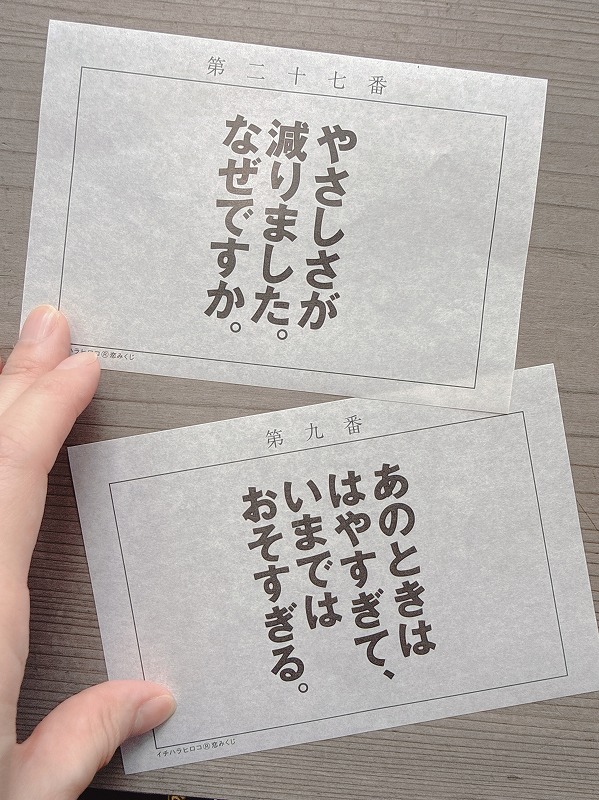 第二十七番
やさしさが
減りました。
なぜですか。
ハラヒロコⓇ恋みくじ
第九番
あのときは
はやすぎて、
いまでは
おそすぎる。
イチハラヒロコⓇ恋みくじ